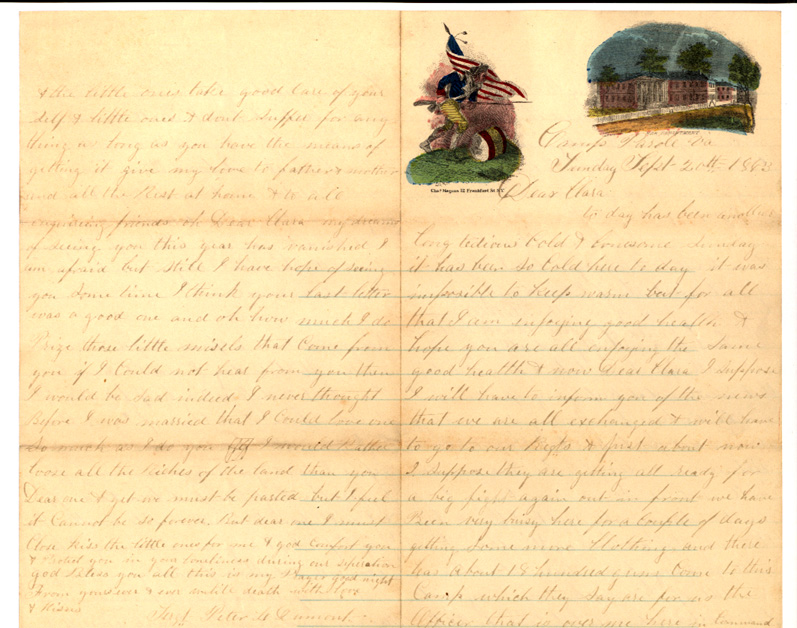 Chas Magnus 12 Frankfort St N.Y.
Camp Parole Va
Sunday Sept 20th 1863
Dear Clara
to day has been another
long tedious Cold & lonesome Sunday
it has been so Cold here to day it was
impossible to keep warm but for all
that I am enjoying good health &
hope you are all enjoying the same
good health & now Dear Clara I suppose
I will have to inform you of the news
that we are all exchanged & will have
to go to our Regts & just about now
I suppose they are getting all ready for
a big fight again out in front we have
Been very busy here for a Couple of days
getting some more Clothing and there
has about 18 hundred guns Come to this
Camp which they say are for us the
Officer that is over me here in Command
& the little ones take good Care of your
self & little ones & dont suffer for any
thing as long as you have the means of
getting it give my love to father & mother
and all the Rest at home & to all
enquiring friends oh Dear Clara my dreams
of seeing you this year has vanished I
am afraid but still I have hope of seeing
you some time I think your last letter
was a good one and oh how much I do
Prize those little misels that Come from
you if I Could not hear from you then
I would be sad indeed I never thought
Before I was married that I Could love one
so much as I do you I would Rather
loose all the Riches of the land than you
Dear one & yet we must be parted but I feel
it Cannot be so forever. But dear one I must
Close Kiss the little ones for me & god Comfort you
& Protect you in your loneliness during our seperation
god Bless you all this is my Prayer good night
From yours ever & ever untill death with love
& Kisses
Sergt Peter Dumont